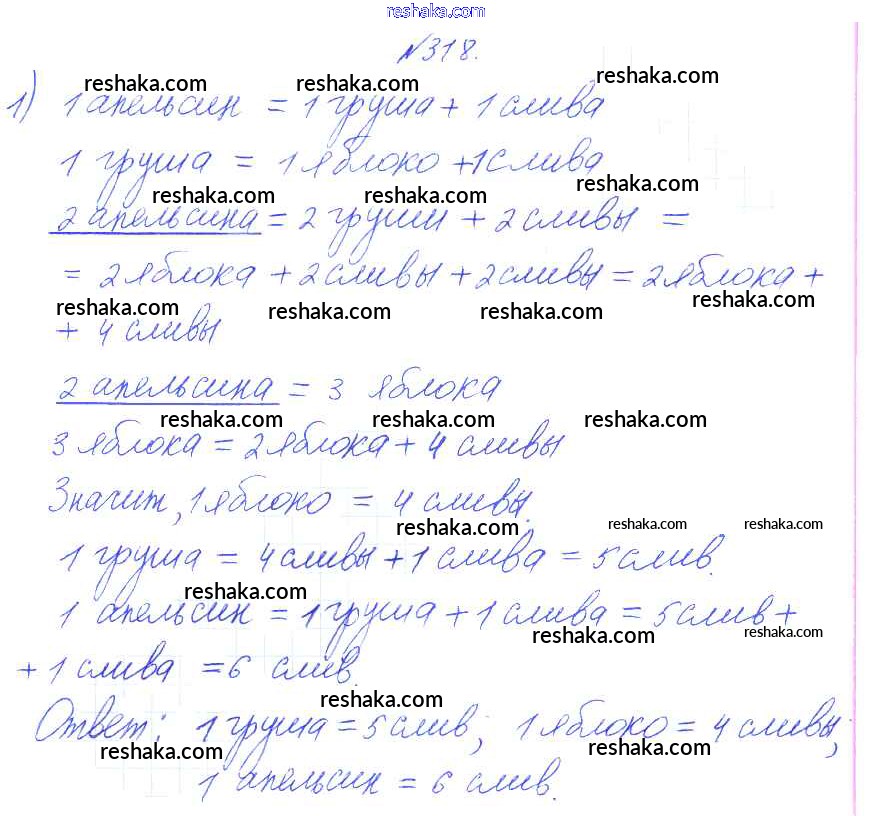 reshaka.com
№318.
reshaka.com reshaka.com reshaka.com
1) 1 апельсин = 1 груша + 1 слива
1 груша = 1 яблоко + 1 слива
reshaka.com reshaka.com reshaka.com
2 апельсина = 2 груши + 2 сливы =
= 2 яблока + 2 сливы + 2 сливы = 2 яблока +
reshaka.com reshaka.com reshaka.com
+ 4 сливы
2 апельсина = 3 яблока
reshaka.com reshaka.com reshaka.com
3 яблока = 2 яблока + 4 сливы
Значит, 1 яблоко = 4 сливы.
reshaka.com reshaka.com reshaka.com
1 груша = 4 сливы + 1 слива = 5 слив.
reshaka.com
1 апельсин = 1 груша + 1 слива = 5 слив +
reshaka.com reshaka.com
+ 1 слива = 6 слив.
reshaka.com
Ответ: 1 груша = 5 слив; 1 яблоко = 4 сливы;
reshaka.com reshaka.com
1 апельсин = 6 слив.